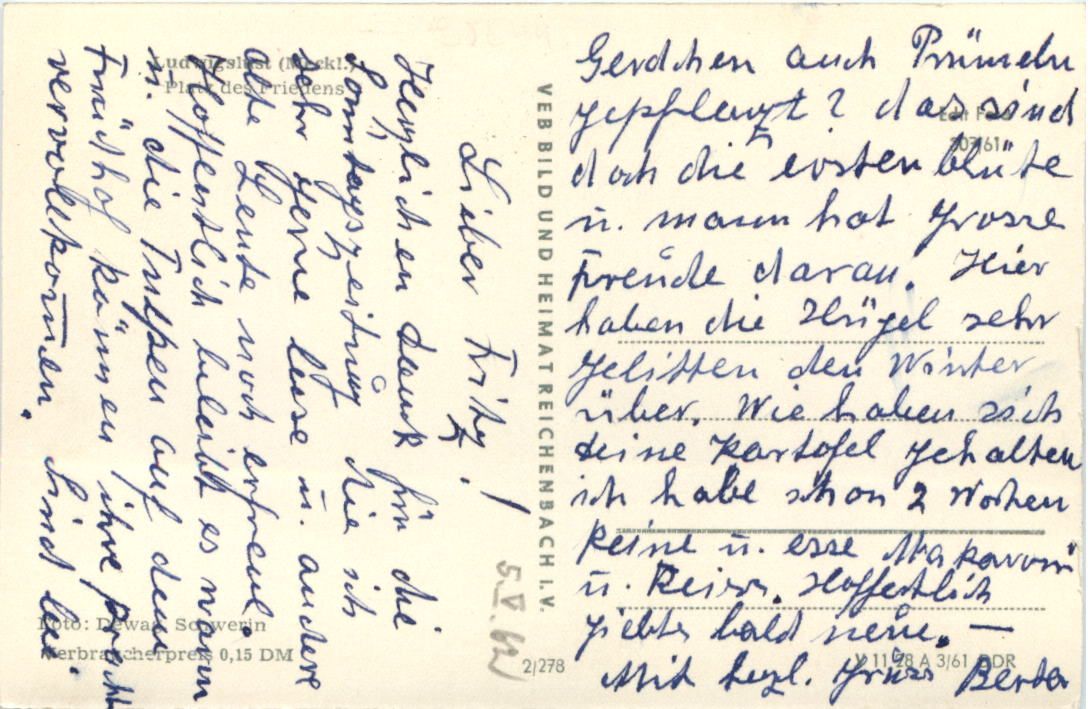 Ludwigslust (Meckl.)
Platz des Friedens
Lieber Fritz!
Herzlichen Dank für die
Sonntagszeitung die ich
sehr gerne lese u. andere
alte Leute noch erfreue.
Hoffentlich beleibt es warm
u. die Tulpen auf dem
Friedhof können ihre pracht
vervollkom̄en. Sind bei
5.V.62
Foto: Dewag, Schwerin
Verbraucherpreis 0,15 DM
VEB BILD UND HEIMAT REICHENBACH I. V.
2/278
Echt Foto
307/61
Gerdchen auch Prümeln
gepflanzt? das sind
doch die ersten blüte
u. mann hat grosse
Freude daran. Hier
haben die Hügel sehr
gelitten den Winter
über. Wie haben sich
deine Kartofel gehalten
ich habe schon 2 Wochen
keine u. esse Makaroni
u. Reiss. Hoffentlich
giebts bald neue. —
Mit herzl. Grüss Berta
V 11 28 A 3/61 DDR